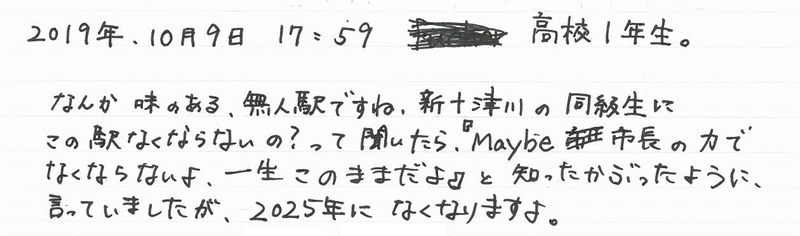 2019年.10月9日 17:59 高校1年生。
なんか味のある、無人駅ですね、新十津川の同級生に
この駅なくならないの？って聞いたら、『Maybe 市長の力で
なくならないよ、一生このままだよ』と知ったかぶったように、
言っていましたが、2025年になくなりますよ。